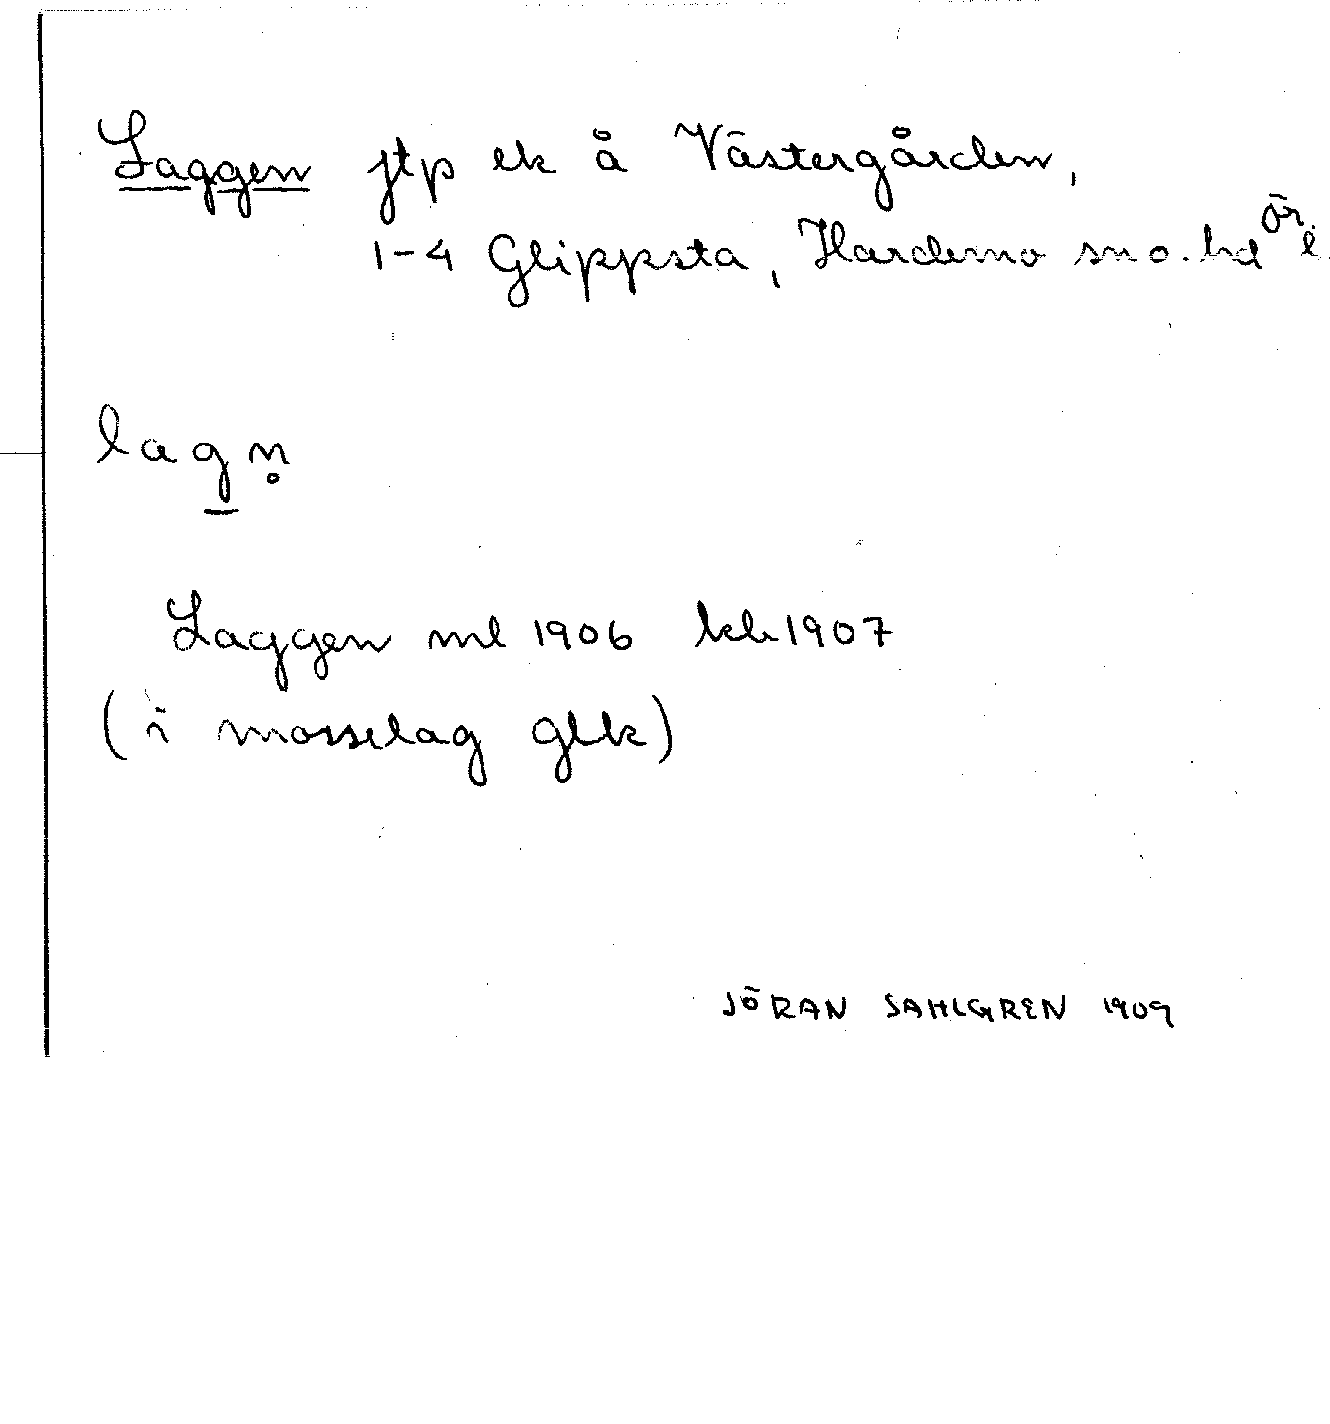 Laggen jtp ek å Västergården,
1-4 Glippsta, Hardemo sn o. hd Ör l.
lagn̥
Laggen ml 1906 kb 1907
(i mosselag glk)
JÖRAN SAHLGREN 1909